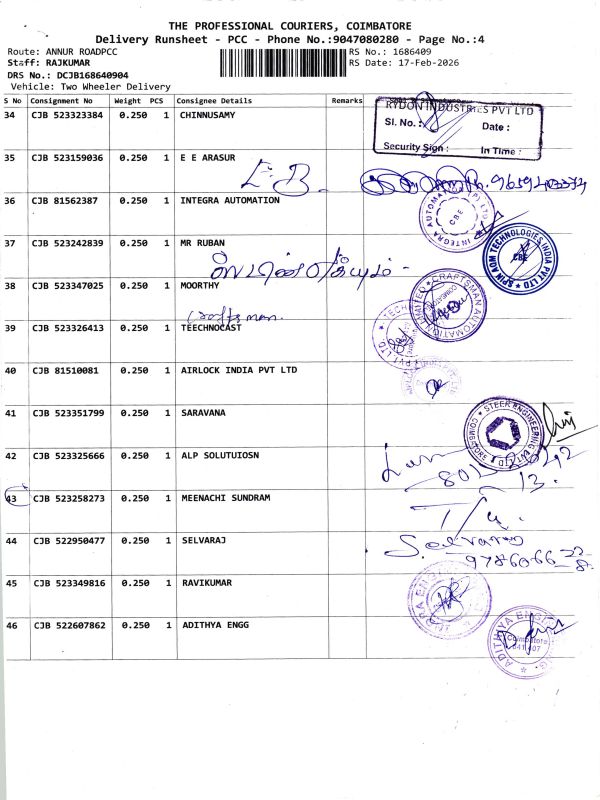 THE PROFESSIONAL COURIERS, COIMBATORE
Delivery Runsheet - PCC - Phone No.:9047080280 - Page No.:4
Route: ANNUR ROADPCC
RS No.: 1686409
Staff: RAJKUMAR
RS Date: 17-Feb-2026
DRS No.: DCJB168640904
Vehicle: Two Wheeler Delivery
S No Consignment No Weight PCS Consignee Details Remarks
34 CJB 523323384 0.250 1 CHINNUSAMY
RYDON INDUSTRIES PVT LTD
Sl. No.: Date :
Security Sign : In Time :
35 CJB 523159036 0.250 1 E E ARASUR
E.B.
36 CJB 81562387 0.250 1 INTEGRA AUTOMATION
INTEGRA AUTOMATION (P) LTD
CBE
37 CJB 523242839 0.250 1 MR RUBAN
SPIN ADM TECHNOLOGIES INDIA PVT LTD
CBE
38 CJB 523347025 0.250 1 MOORTHY
Craftsman.
CRAFTSMAN AUTOMATION LIMITED
39 CJB 523326413 0.250 1 TEECHNOCAST
40 CJB 81510081 0.250 1 AIRLOCK INDIA PVT LTD
41 CJB 523351799 0.250 1 SARAVANA
STEER ENGINEERING
42 CJB 523325666 0.250 1 ALP SOLUTUIOSN
43 CJB 523258273 0.250 1 MEENACHI SUNDRAM
44 CJB 522950477 0.250 1 SELVARAJ
Selvaraj
45 CJB 523349816 0.250 1 RAVIKUMAR
46 CJB 522607862 0.250 1 ADITHYA ENGG
Coimbatore
641 407